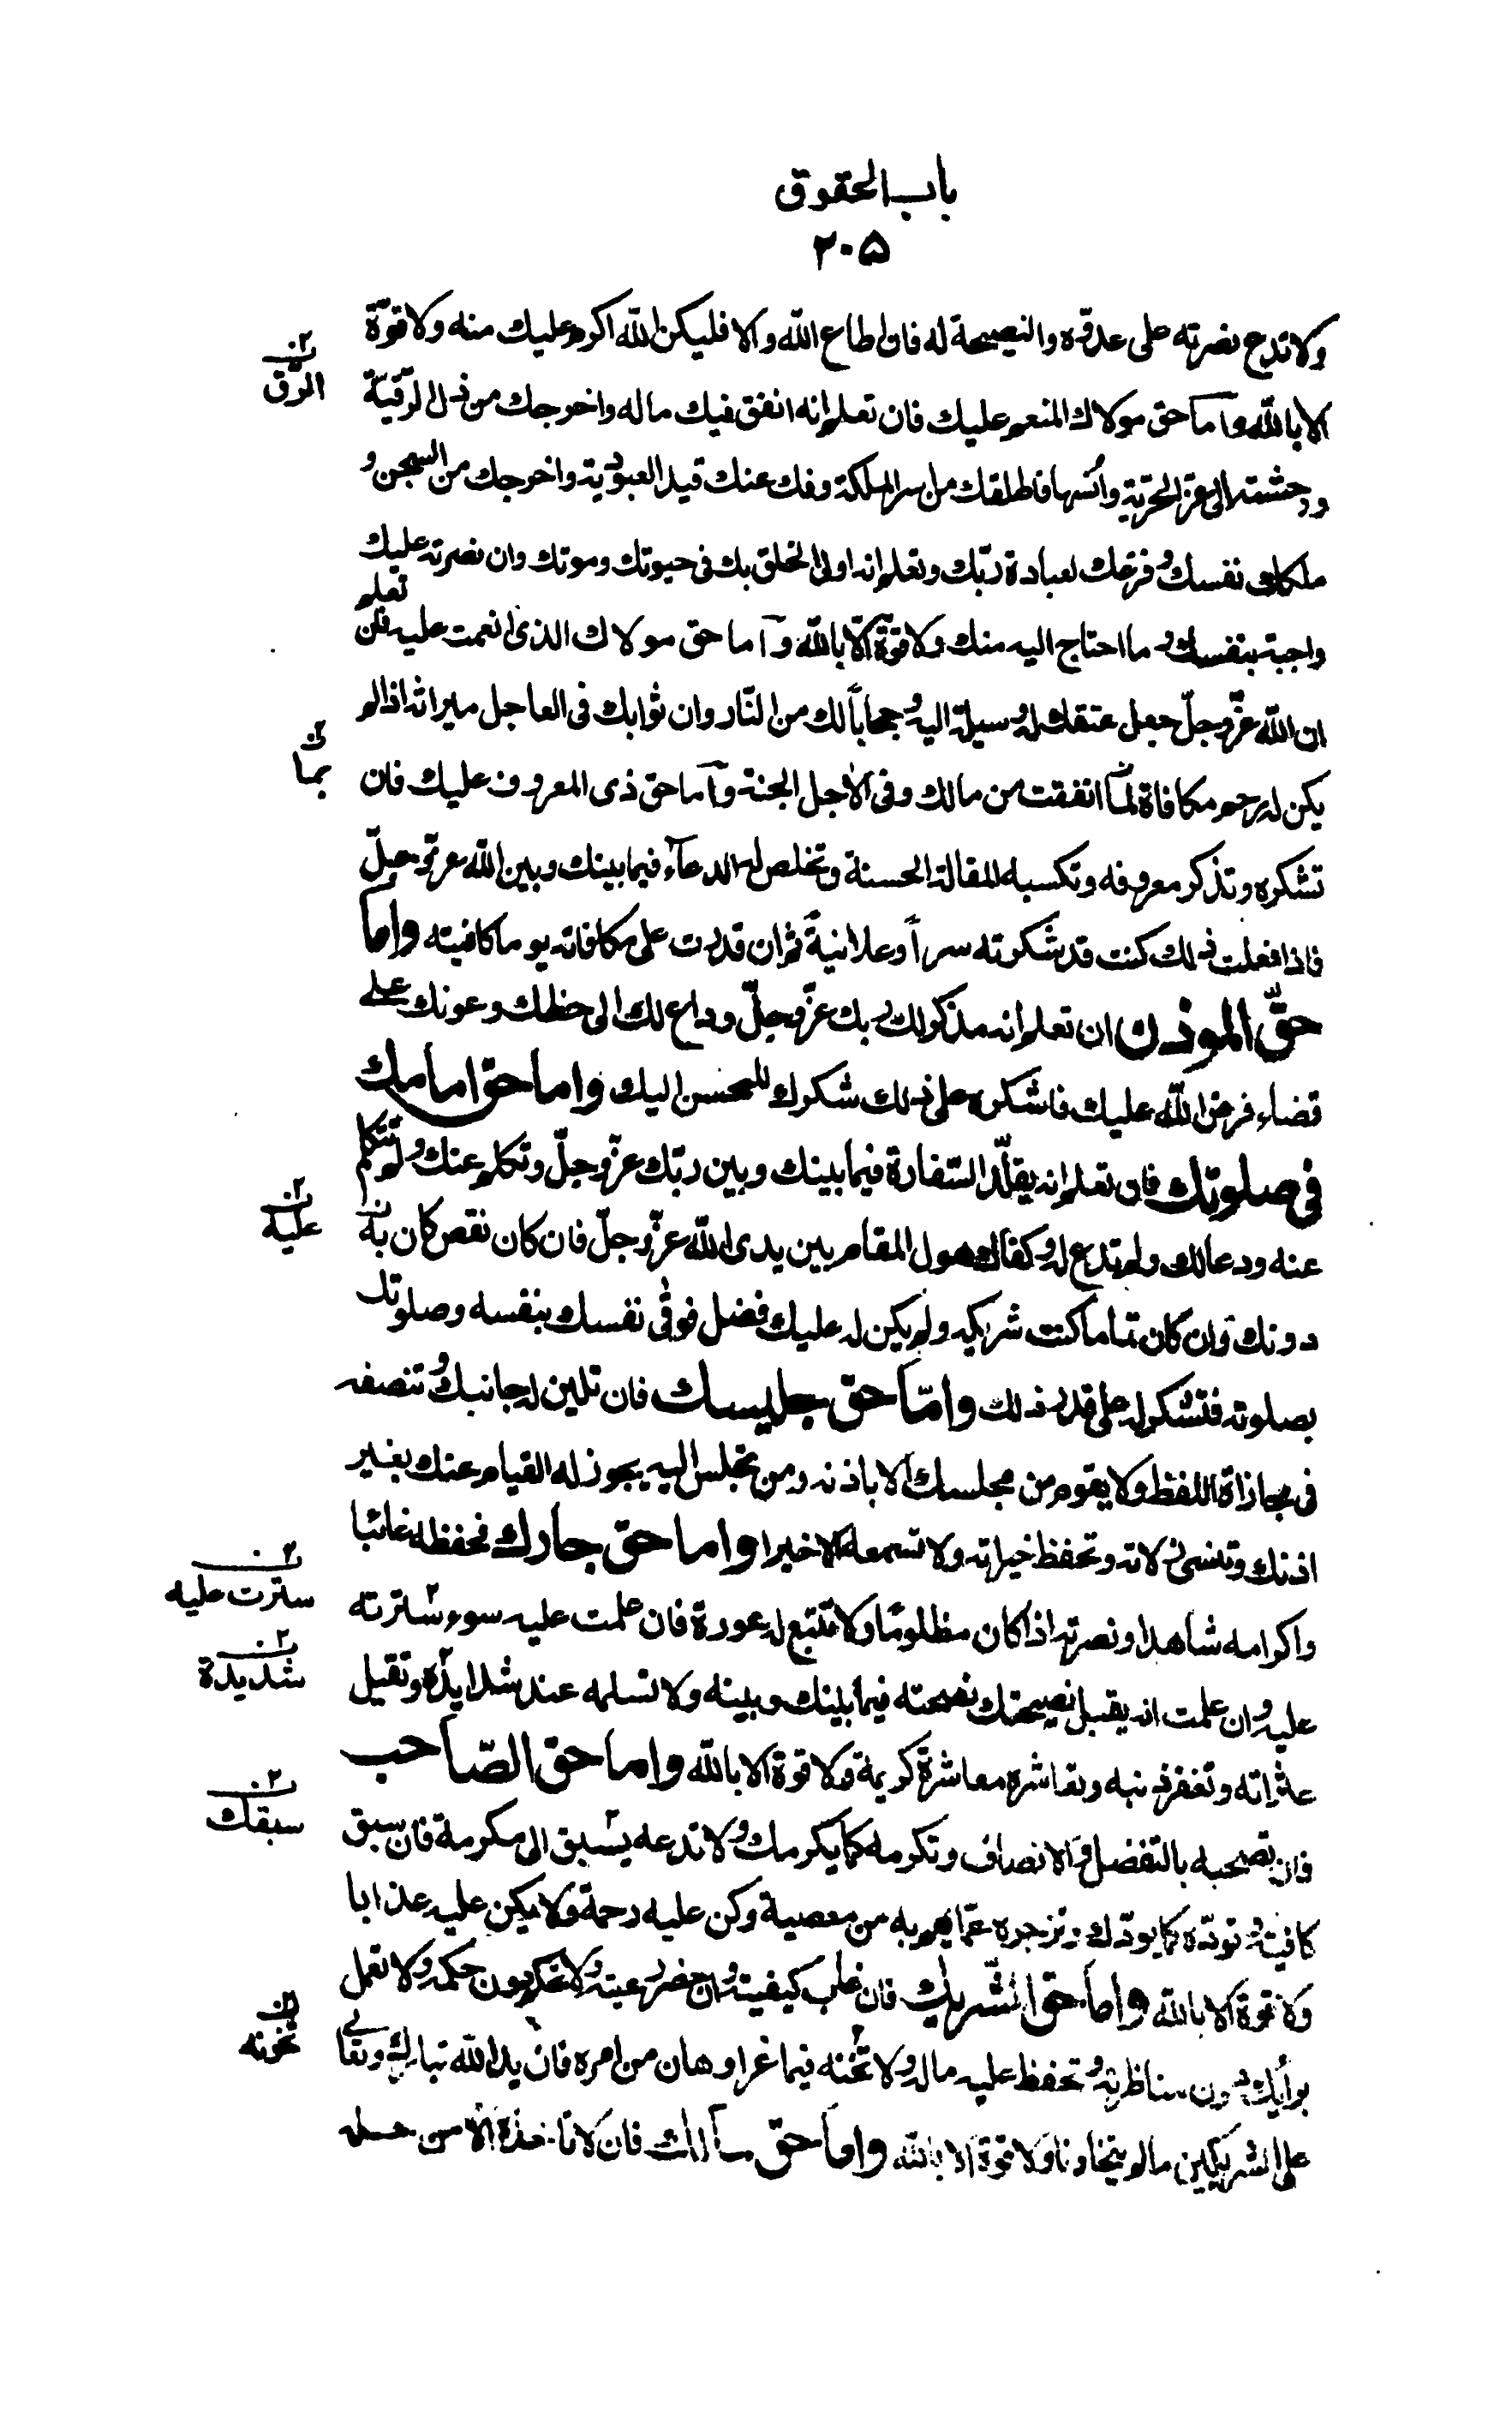 باب الحقوق
٢٠۵
ولا تدع نصرته على عدوّه والنصيحة له فان اطاع الله والا فليكن الله اكرم عليك منه ولا قوّة
الا بالله وآما حق مولاك المنعم عليك فان تعلم انه انفق فيك ماله واخرجك من ذل الرقيّة
ووحشته الى عز الحرّية وانسها فاطلقك من اسر الملكة وفك عنك قيد العبودية واخرجك من السجن و
ملكك نفسك وفرغك لعبادة ربّك وتعلم انه اولى الخلق بك فى حيوتك وموتك وان نصرته عليك
واجبة بنفسك و ما احتاج اليه منك ولا قوّة الّا بالله وآما حق مولاك الذى انعمت عليه فان تعلم
ان الله عزّ وجلّ جعل عتقك له وسيلة اليه وحجاباً لك من النّار وان ثوابك فى العاجل ميراثه اذا لم
يكن له رحم مكافاة لمّا انفقت من مالك وفى الآجل الجنة وآما حق ذى المعروف عليك فان
تشكره وتذكر معروفه وتكسبه المقالة الحسنة وتخلص له الدعآء فيما بينك وبين الله عز وجلّ
فاذا فعلت ذلك كنت قد شكرته سراً وعلانيةً ثم ان قدرت على مكافاته يوما كافيته واما
حقّ الموذن ان تعلم انه مذكر لك ربك عزّ وجلّ وداع لك الى حظك وعونك على
قضاء فرض الله عليك فاشكره على ذلك شكرك للمحسن اليك واما حق امامك
فى صلوتك فان تعلم انه يقلّد السّفارة فيما بينك وبين ربّك عزّ وجلّ وتكلم عنك ولم تتكلم
عنه ودعا لك ولم تدع له وكفاك هول المقام بين يدى الله عزّ وجلّ فان كان نقص كان به
دونك وان كان تماما كنت شريكه ولم يكن له عليك فضل فوقى نفسك بنفسه وصلوتك
بصلوته فتشكر له على قدر ذلك وامّا حق جليسك فان تلين له جانبك وتنصفه
فى مجازاة اللفظ ولا يقوم من مجلسك الا باذنه ومن تجلس اليه يجوز له القيام عنك بغير
اذنك وتنسى زلاته وتحفظ خيراته ولا تسمعه الا خيرا واما حق جارك فحفظه غائبا
واكرامه شاهدا ونصرته اذا كان مظلومًا ولا تتبع له عورة فان علمت عليه سوء سترته
عليه وان علمت انه يقبل نصيحتك نصحته فيما بينك وبينه ولا تسلمه عند شدايده وتقيل
عثراته وتغفر ذنبه وتعاشره معاشرة كريمة ولا قوة الا بالله واما حق الصّاحب
فان تصحبه بالتفضل والانصاف وتكرمه كما يكرمك ولا تدعه يسبق الى مكرمة فان سبق
كافيته وتودّه كما يودّك وتزجره عمّا يهم به من معصية وكن عليه رحمة ولا تكن عليه عذابا
ولا قوة الا بالله واما حق الشّريك فان غاب كفيته وان حضر رعيته ولا تحكم دون حكمه ولا تعمل
برأيك دون مناظرته وتحفظ عليه ماله ولا تخنه فيما عز او هان من امره فان يد الله تبارك وتعالى
على الشريكين ما لم يتخاونا ولا قوة الا بالله واما حق مالك فان لا تاخذه الا من حله
الرّق
بما
عليه
سترت عليه
شديدة
سبقك
تخونه